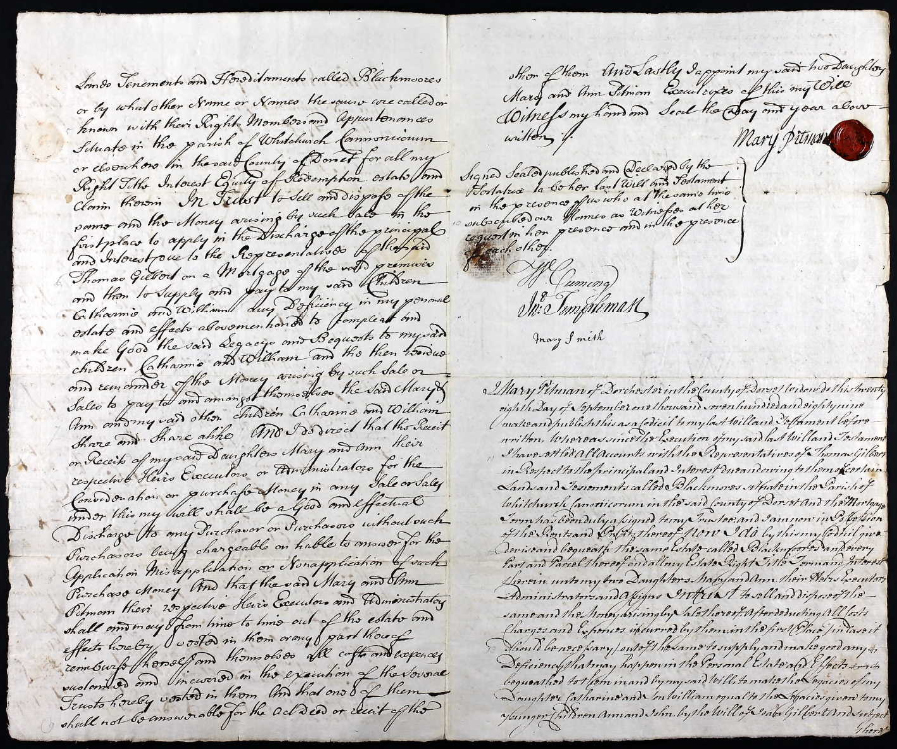 Lands Tenements and Hereditaments called Blackmoores
or by what other Name or Names the same are called or
known with their Rights Members and Appurtenances
Situate in the parish of Whitchurch Cannonicorum
or elsewhere in the said County of Dorset for all my
Right Title Interest Equity of Redemption estate and
claim therein In Trust to Sell and dispose of the
same and the Money arising by such Sale in the
first place to apply in the Discharge of the principal
and Interest due to the Representatives of the said
Thomas Gilbert on a Mortgage of the said premises
and then to Supply and pay to my said Children
Catharine and William any Deficiency in my personal
estate and effects abovementioned to compleat and
make Good the said Legacies and Bequests to my said
children Catharine and William and the then residue
and remainder of the Money arising by such Sale or
Sales to pay to and amongst themselves the said Mary &
Ann and my said other Children Catharine and William
share and share alike And I do direct that the Receit
or Receits of my said Daughters Mary and Ann their
respective Heirs Executors or Administrators for the
Consideration or purchase Money in any Sale or Sales
under this my will shall be a Good and Effectual
Discharge to any Purchaser or Purchasers without such
Purchasers being chargeable or liable to answer for the
Application Misapplication or Nonapplication of such
Purchase Money And that the said Mary and Ann
Pitman their respective Heirs Executors and Administrators
shall and may from time to time out of the estate and
effects hereby vested in them or any part thereof
reimburse herself and themselves all costs and expences
sustained and incurred in the execution of the several
Trusts hereby vested in them And that one of them
shall not be answerable for the Act Deed or receit of the
other of them And Lastly I appoint my said two Daughters
Mary and Ann Pitman Executrixes of this my Will
Witness my hand and Seal the Day and year above
written
Mary Pitman
Signed Sealed published and Declared by the
Testatrix to be her last Will and Testament
in the presence of us who at the same time
subscribed our Names as Witnesses at her
request in her presence and in the presence
of each other
Cuming
Jno. Templeman
Mary Smith
I Mary Pitman of Dorchester in the County of Dorset Widow do this twenty
eighth Day of September one thousand seven hundred and eighty nine
make and publish this as a Codicil to my last Will and Testament before
written Whereas since the Execution of my said last Will and Testament
I have settled Accounts with the Representatives of Thomas Gilbert
in Respect to the principal and Interest due and owing to them of certain
Lands and Tenements called Blackmores situate in the Parish of
Whitchurch Canonicorum in the said County of Dorset and the Mortgage
Term has been duly assigned to my Trustee and I am now in Possession
of the Rents and Profits thereof Now I do by this my Codicil give
devise and bequeath the same Estate called Blackmores and every
Part and Parcel thereof and all my Estate Right Title Term and Interest
therein unto my two Daughters Mary and Ann their Heirs Executors
Administrators and Assigns In Trust to sell and dispose of the
same and the Money arising by Sale thereof after deducting All Costs
Charges and Expences incurred by them in the first Place (in case it
should be necessary) out of the same to supply and make good any
Deficiency that may happen in the Personal Estate and Effects
bequeathed to them in and by my said Will to make the Legacies of my
Daughter Catharine and Son William equal to the Legacies given to my
younger Children Ann and John by the Will of Isaac Gilbert And subject
thereto